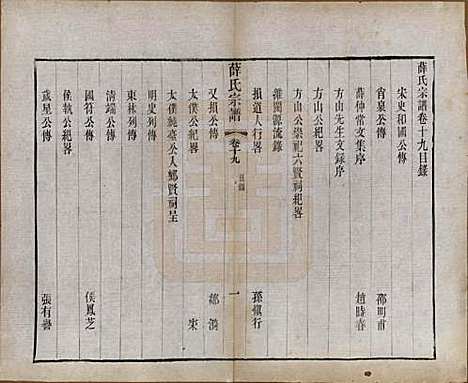 薛氏宗譜卷十九目錄
宋史和國公傳
肖泉公傳 邵明甫
薛仲常文集序 趙時春
方山先生文錄序
方山公紀畧
方山公崇祀六賢祠紀畧
雒閩源流錄
損道人行畧 孫慎行
薛氏宗譜 卷十九 目錄 一
又損公傳 鄒漪
太僕公紀畧 宋
太僕純臺公入鄉賢祠呈
明史列傳
東林列傳
清端公傳
國符公傳 侯鳳芝
侯執公傳
歲星公傳 張有譽